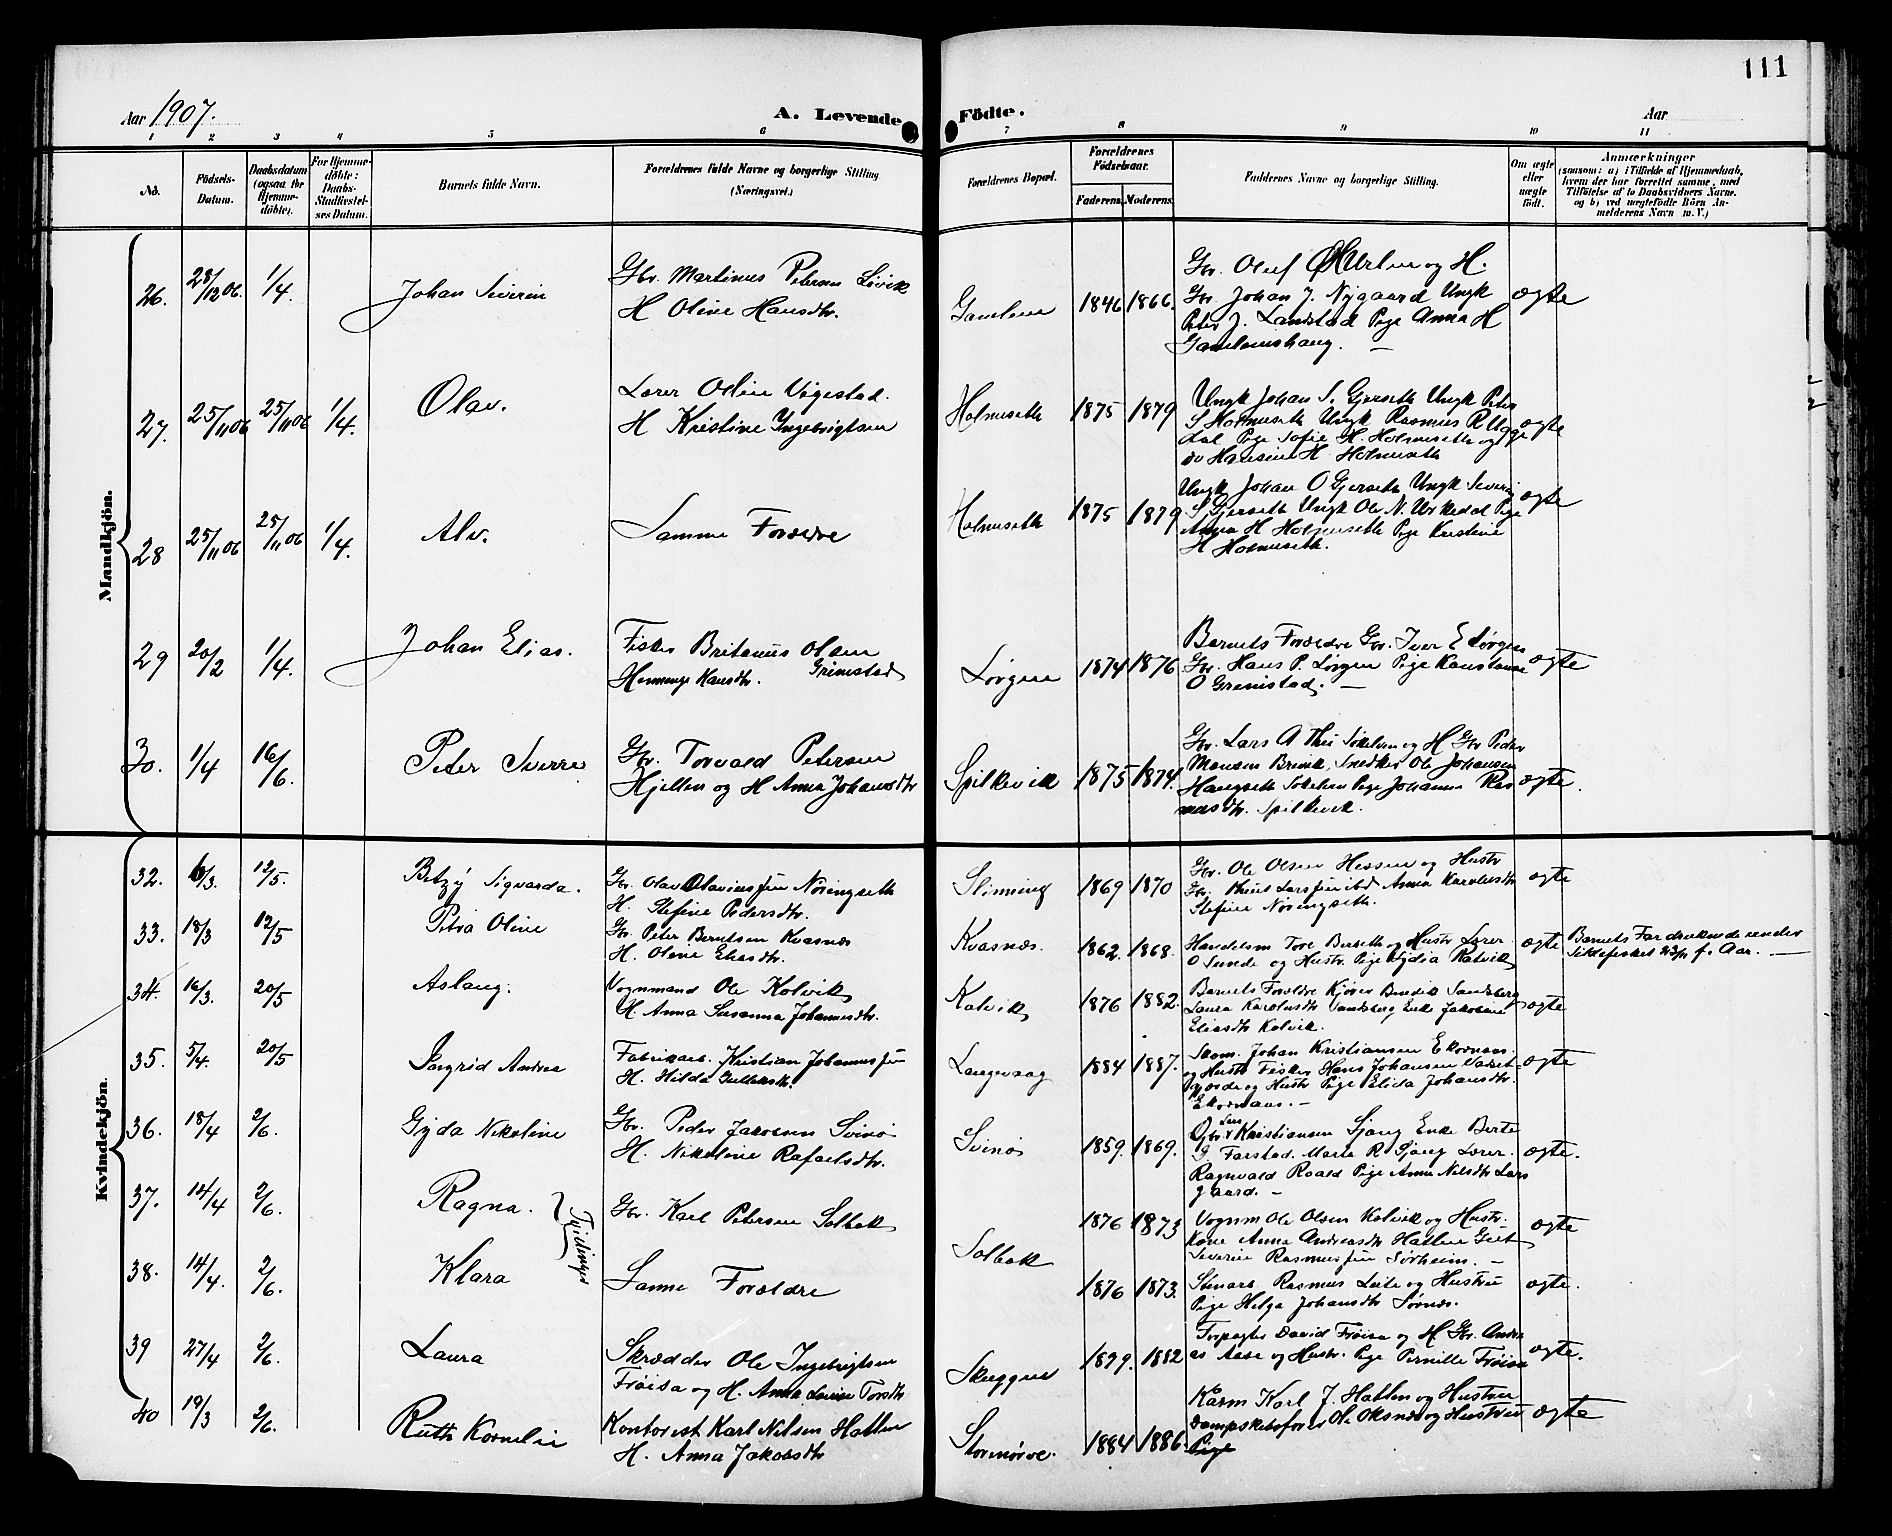 111
Aar 1907.
A. Levende Födte.
Aar
1 2 3 4 5 6 7 8 9 10 11
No.
Födsels-Datum.
Daabsdatum (ogsaa for Hjemme-döbte).
For Hjemme-döbte: Daabs-Stadfæstel-ses Datum.
Barnets fulde Navn.
Forældrenes fulde Navne og borgerlige Stilling (Næringsvei.)
Forældrenes Bopæl.
Forældrenes Födselsaar.
Faderens. Moderens.
Faddernes Navne og borgerlige Stilling.
Om ægte eller uægte födt.
Anmærkninger
(saasom: a) i Tilfælde af Hjemmedaab,
hvem der har forrettet samme, med
Tilföielse af to Daabsvidners Navne.
og b) ved uægtefödte Börn An-
melderens Navn m. V.)
Mandkjön.
26. 28/12 06. 1/4. Johan Severin
Gbr. Martinus Petersen Løvik
H Oline Hansdtr.
Gamlem 1846 1866.
Gbr. Oluf
og H.
Gbr Johan J. Nygaard Ungk
Peter J. Landstad Pige Anna H
Gamlemshaug. —
ægte
27. 25/11 06 25/11 06 1/4. Olav.
Lærer Odin Vigestad.
H Kristine Ingebrigtsen
Holmeseth 1875 1879
Ungk Johan S. Gjerseth Ungk Peter
S Holmeseth Ungk Rasmus R Ugge
dal Pige Sofie H. Holmeseth og
do Hansine H Holmeseth
ægte
28 25/11 06 25/11 06 1/4. Alv.
Samme Forældre
Holmeseth 1875 1879
Ungk Johan O Gjerseth Ungk Severin
S Gjerseth Ungk Ole N. Urkedal Pige
Anna H Holmeseth Pige Kristine
H Holmeseth.
ægte
29 20/2 1/4. Johan Elias.
Fisker Britanus Olsen
Grimstad
Hansdtr.
Sørgen 1874 1876
Barnets Forældre Gbr. Iver E Sørgen
Gbr. Hans P. Sørgen Pige Konstanse
O Grimstad. —
ægte
30. 1/4 16/6. Peter Sverre
Gbr. Torvald Petersen
Hjellen og H Anna Johansdtr
Spilkevik 1875 1874.
Gbr. Lars A
og H Gbr Peder
Monsen
Snedker Ole Johansen
Pige Johanna Ras
musdtr. Spilkevik.
ægte.
Kvindekjön.
32. 6/3. 12/5. Betzy Sigvarda.
Gbr. Olav Olaviussøn Nøringseth
H. Stefine Pedersdtr.
Slinning 1869 1870
Gbr. Ole Olsen Hessen og Hustr
Gbr. Thius Larssøn ibd Anna Karolusdtr
Stefine Nøringseth.
ægte
33. 18/3 12/5 Petra Oline
Gbr. Peter Berntsen Kvasnæs
H. Oline Eliasdtr.
Kvasnæs. 1862. 1868.
Handelsm Tore Berseth og Hustr Lærer
O Sunde og Hustr. Pige Lydia Ratvik
ægte
Barnets Far druknede under
Sildefisket 23/1 f. Aar. —
34. 16/3. 20/5 Aslaug.
Vognmand Ole Kolvik
H. Anna Susanna Johannesdtr.
Kolvik 1876 1882.
Barnets Forældre Kjører Bendik Sandsberg
Laura Karolusdtr Sandsberg Enke Jakobine
Eliasdtr Kolvik.
ægte
35. 5/4. 20/5 Ingrid Andrea
Fabrikarb. Kristian Johannessøn
H. Hilda
Langevaag 1884 1887.
Skom. Johan Kristiansen Ekornæs.
og Hustr Fisker Hans Johansen
og Hustr Pige Elida Johansdtr.
Ekornæs. —
ægte
36. 18/4 2/6. Gyda Nikoline
Gbr. Peder Jakobsen Svinø
H. Nikoline Rafaelsdtr.
Svinø 1859. 1869.
Gbr Lars Kristiansen Sjong Enke Berte
G. Farstad. Marie R. Sjong Lærer.
Ragnvald Roald Pige Anna Nilsdtr Lars
gaard. —
ægte.
37. 14/4 2/6. Ragna.
Tvillinger
Gbr. Karl Petersen Solbak
Solbak 1876 1873
Vognm Ole Olsen Kolvik og Hustr.
Kone Anna Andreasdtr Hatlen Gut
Severin Rasmussøn Sørheim. —
ægte
38. 14/4. 2/6. Klara
Samme Forældre
1876 1873.
Stenarb Rasmus Leite og Hustru
Pige Helga Johansdtr Sørnæs.
ægte.
39 27/4 2/6. Laura
Skrædder Ole Ingebrigtsen
Frøisa og H. Anna Lovise Torsdtr
Skuggen 1879. 1882
Forpagter David Frøisa og H Gbr. Andre
as Aase og Hustr. Pige Pernille Frøisa
ægte.
40 19/3 2/6. Ruth Kornelie
Kontorist Karl Nilsen Hatlen
H. Anna Jakobsdtr
Stornørve. 1884 1886.
Karl J. Hatlen og Hustru
Dampskibsfører Ole Oksnes og Hustru
Pige
ægte